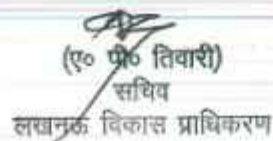 (ए० पी० तिवारी)
सचिव
लखनऊ विकास प्राधिकरण